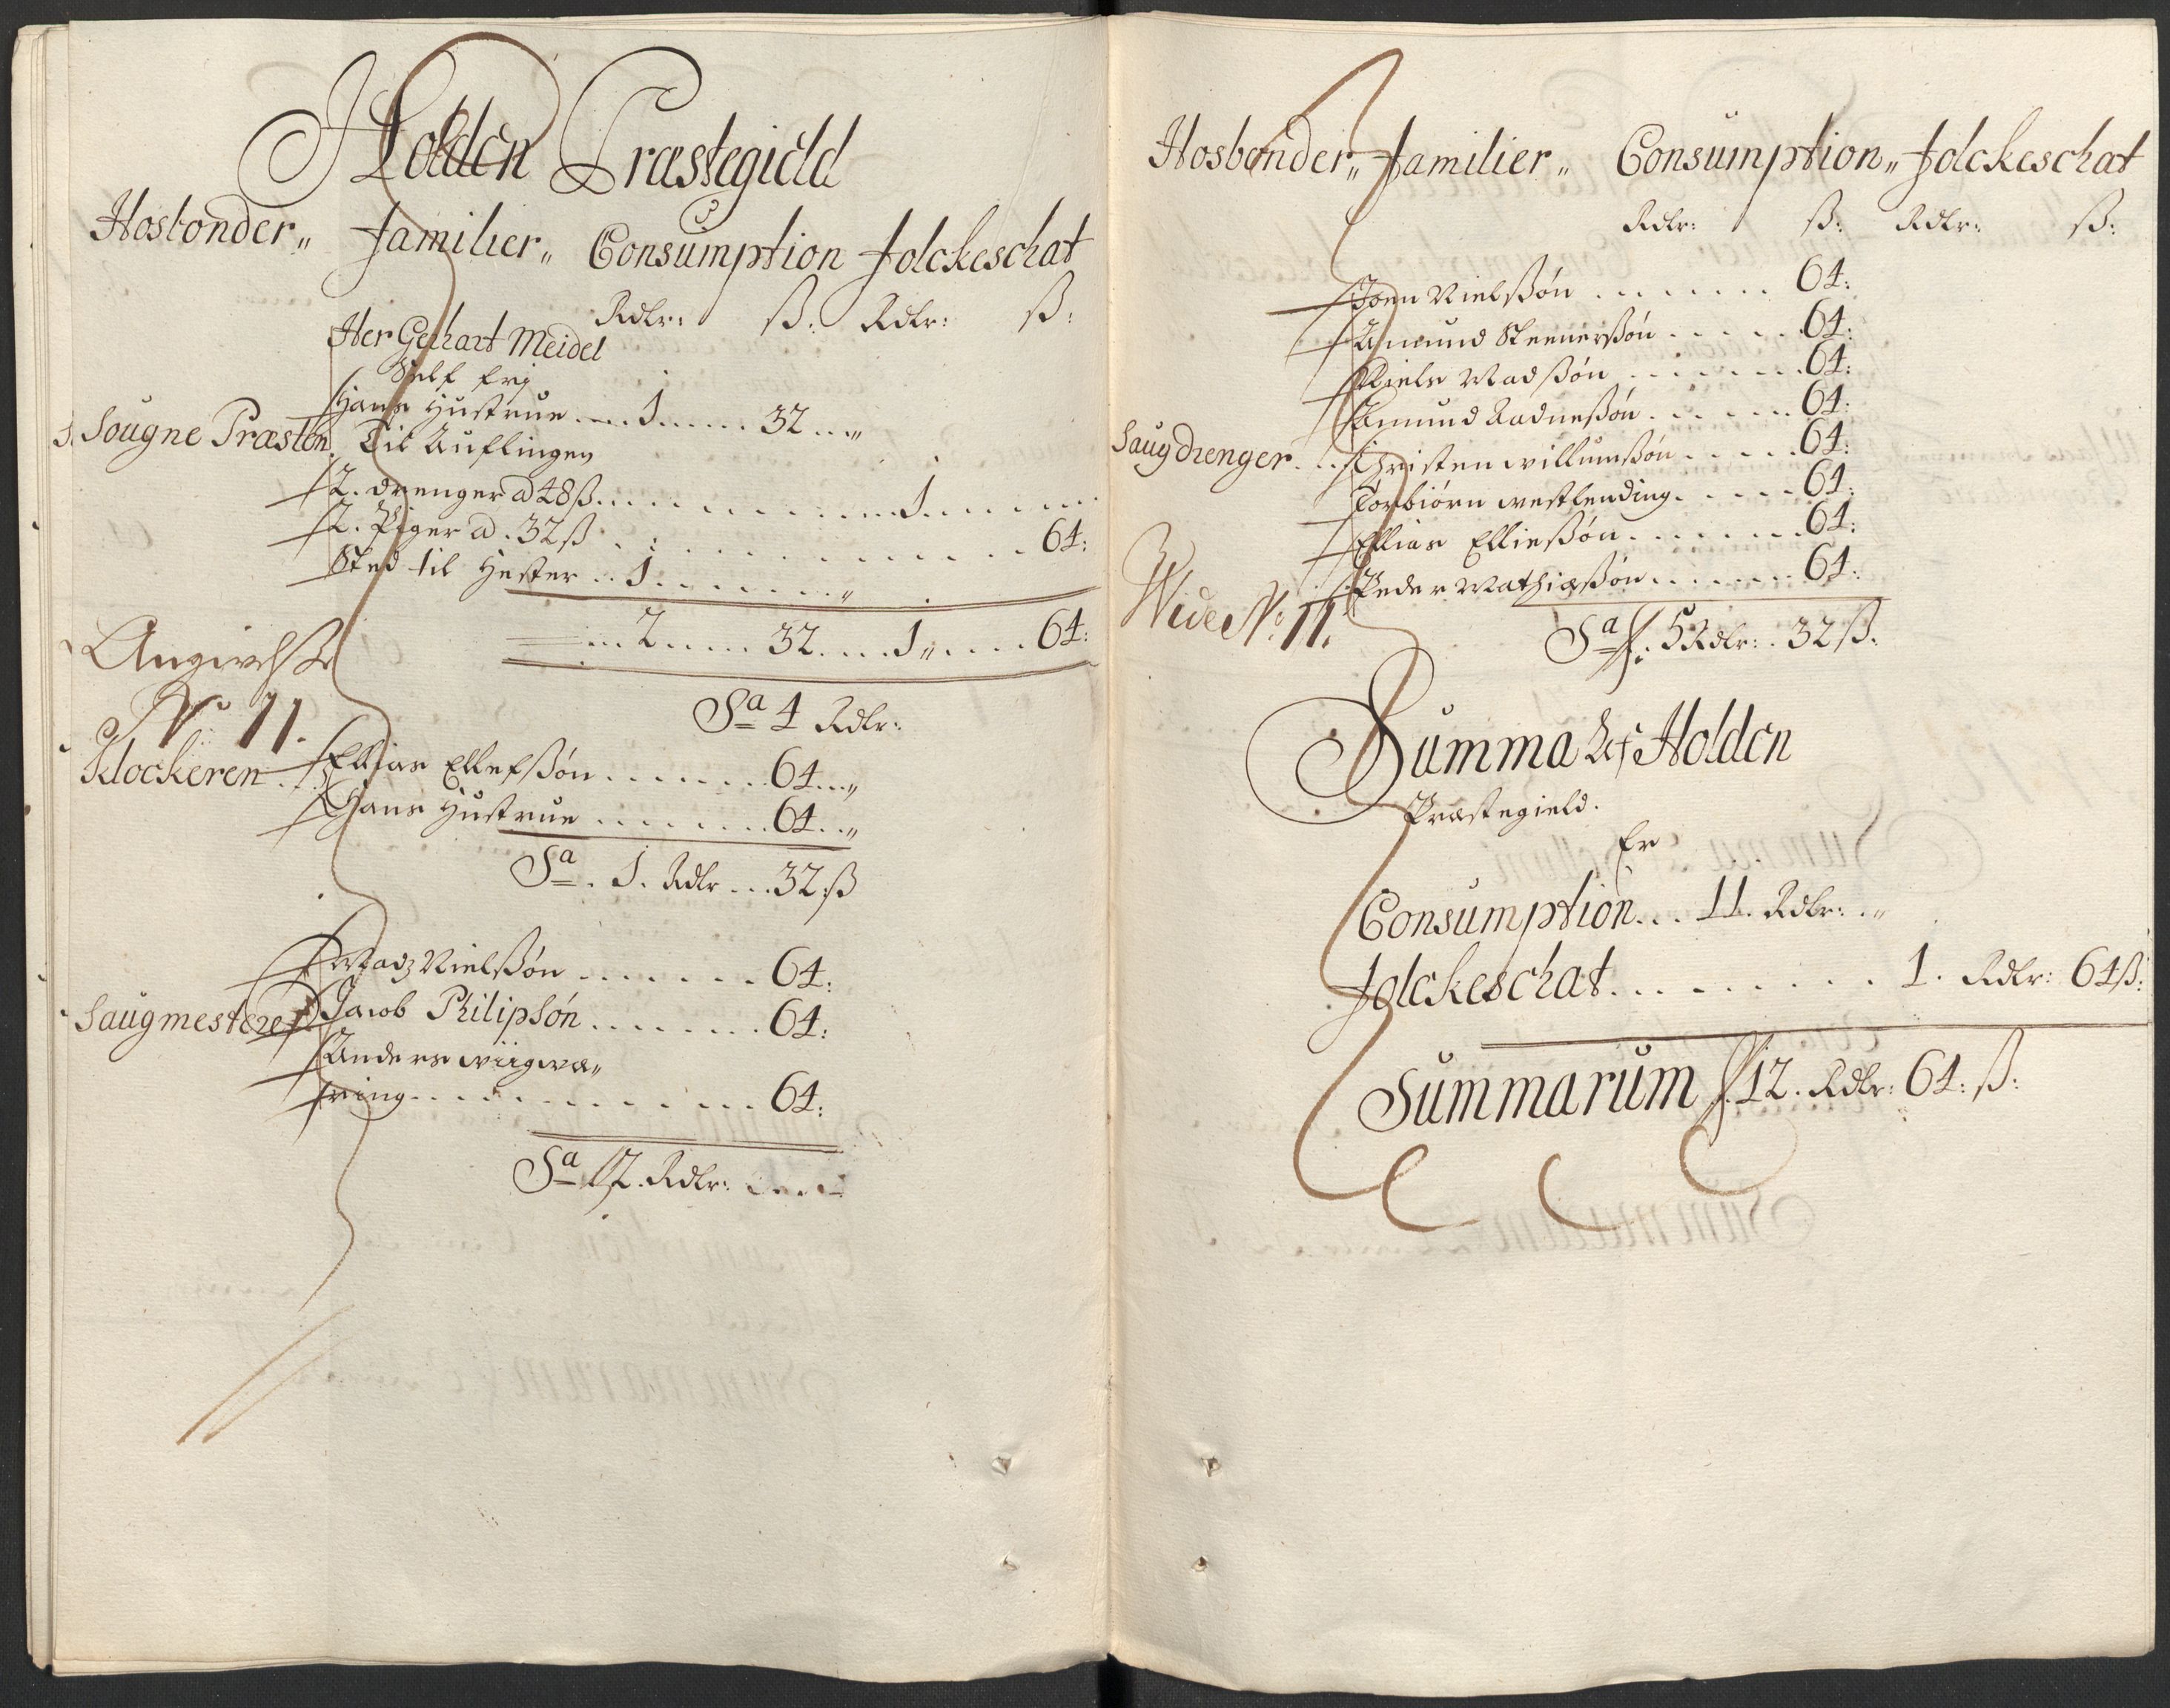 Holden Præstegield
Hosbonder„ Familier„ Consumption Folckeschat
Rdlr: ß: Rdlr: ß:
Her Gerhart Meidel
Self frj
Hans Hustrue . . . 1 . . . . 32 . . „
Sougne Præsten. Til Auflingen
2. drenger a 48 ß . . . . . . . . . . 1 . . . . .
2. Piger a. 32 ß . . . . . . . . . . . . 64:
Sted til Hester . . 1 . . . . . . „ .
. . . 2 . . . . . 32 . . . . 1 „ . . . . 64:
Angivelse
No 11.
Sa 4 Rdlr:
Klockeren . . . Ellias Ellefßøn . . . . . . . 64 . . . „
Hans Hustrue . . . . . . . . 64 . . „
Sa . 1. Rdlr . . . 32: ß
Madz Nielßøn . . . . . . . 64:
Saugmestere Jacob Philipsøn . . . . . . . 64:
Anders wiigwæ„
ring . . . . . . . . . . . 64:
Sa 2. Rdlr:
Hosbonder„ Familier„ Consumption„ Folckeschat
Rdlr: ß: Rdlr: ß:
Joen Nielßøn . . . . . . . 64:
Amund Steenerßøn . . . . . 64:
Niels Madßøn . . . . . . . 64:
Amund Aadneßøn . . . . . . 64:
Saugdrenger . . . Christen willumßøn . . . . . 64:
Torbiørn westlending . . . . . 64:
Ellias Elließøn . . . . . . . 64:
Peder Mathiæßøn . . . . . . . 64:
Wide No: 11.
Sa 5 Rdlr: . 32 ß.
Summa Af Holden
Præstegield.
Er
Consumption . . . 11. Rdlr: . „
Folckeschat . . . . . . . . . 1. Rdlr: 64 ß:
Summarum 12. Rdlr: 64: ß: